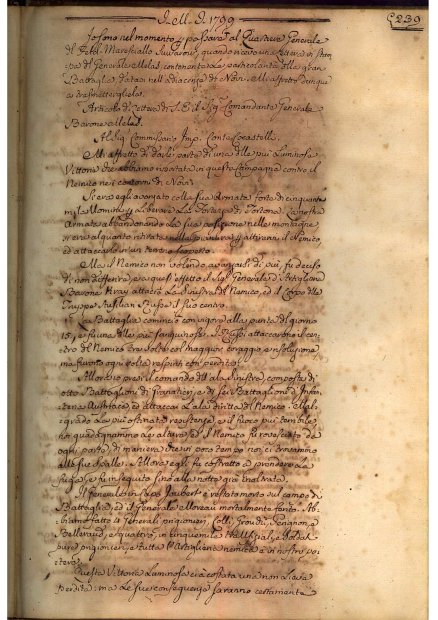 1799
239
Io sono nel momento di passare al Quartiere Generale
del Feld Maresciallo Suwarow, quando ricevo una lettera in stam
pa del Generale Melas, contenente la particolarità della gran
Battaglia data nelle vicinanze di Novi. Mi affretto dunque
a trasmettergliela.
Articolo di Lettera di S. E. il Sig. Comandante Generale
Barone Melas.
Al Sig. Commissario Imp. Conte Cocastelli.
Mi affretto di darle parte di una delle più luminose
Vittorie che abbiamo riportata in questa Campagna contro il
Nemico nei contorni di Novi.
Si era egli avanzato colla sua Armata forte di cinquanta
mila Uomini per liberare la Fortezza di Tortona. La nostra
Armata abbandonando la sua posizione nelle montagne,
si era alquanto ritirata nella pianura per attirarvi il Nemico
ed attaccarlo in un terreno aperto.
Ma il Nemico non volendo avanzarsi di più, fu deciso
di non differire, e a quell' effetto il Sig. Generale d'Artiglieria
Barone Kray attaccò la Sinistra del Nemico, ed il Corpo delle
Truppe Ausiliarie Russe il suo centro.
La Battaglia cominciò con vigore alla punta del giorno
15, e fu una delle più sanguinose. I Russi attaccarono il cen
tro del Nemico tre volte col maggior coraggio e risoluzione
ma furono ogni volta respinti con perdita.
Allora io presi il comando dell' ala Sinistra, composta di
otto Battaglioni di Granatieri, e di sei Battaglioni d'Infan
teria Austriaca, ed attaccai l'ala diritta del Nemico. Mal
grado la più ostinata resistenza, e il fuoco più terribile,
si guadagnarono le alture, ed il Nemico fu rovesciato da
ogni parte, di maniera che in poco tempo noi ci trovammo
alle sue spalle. Allora egli fu costretto a prendere la
fuga, e fu inseguito fino alla notte già inoltrata.
Il Generale in Capo Joubert è restato morto sul campo di
Battaglia, ed il Generale Moreau mortalmente ferito. Ab
biamo fatto 4 Generali prigionieri, Colli, Grouchi, Perignon, e
Partonaud, e quattro, in cinquemila tra Uffiziali, e Soldati
pure prigionieri, e tutta l'Artiglieria nemica è in nostro po
tere.
Questa Vittoria luminosa ci è costata una non lieve
perdita: ma le sue conseguenze saranno certamente